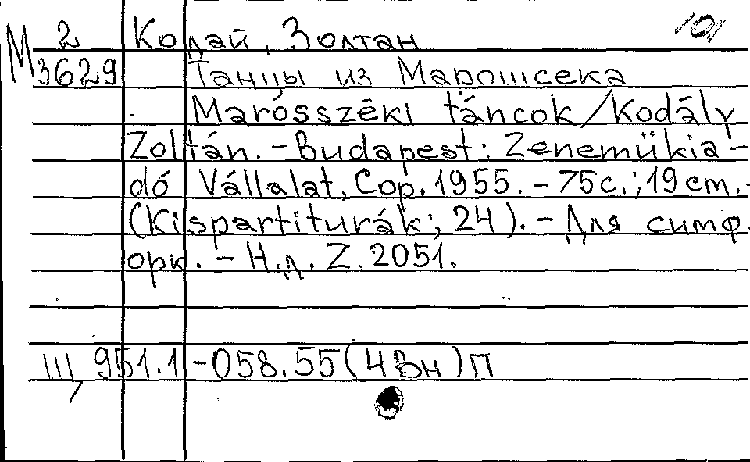 М 2 Кодай, Золтан 101
3629 Танцы из Марошсека
Marósszéki táncok/Kodály
Zoltán. - Budapest: Zeneműkia-
dó Vállalat, Cop. 1955. - 75с.; 19 cm. -
(Kispartiturák; 24). - Для симф.
орк. - Н.д. Z. 2051.
III, 951.1-058.55(4Вн)П